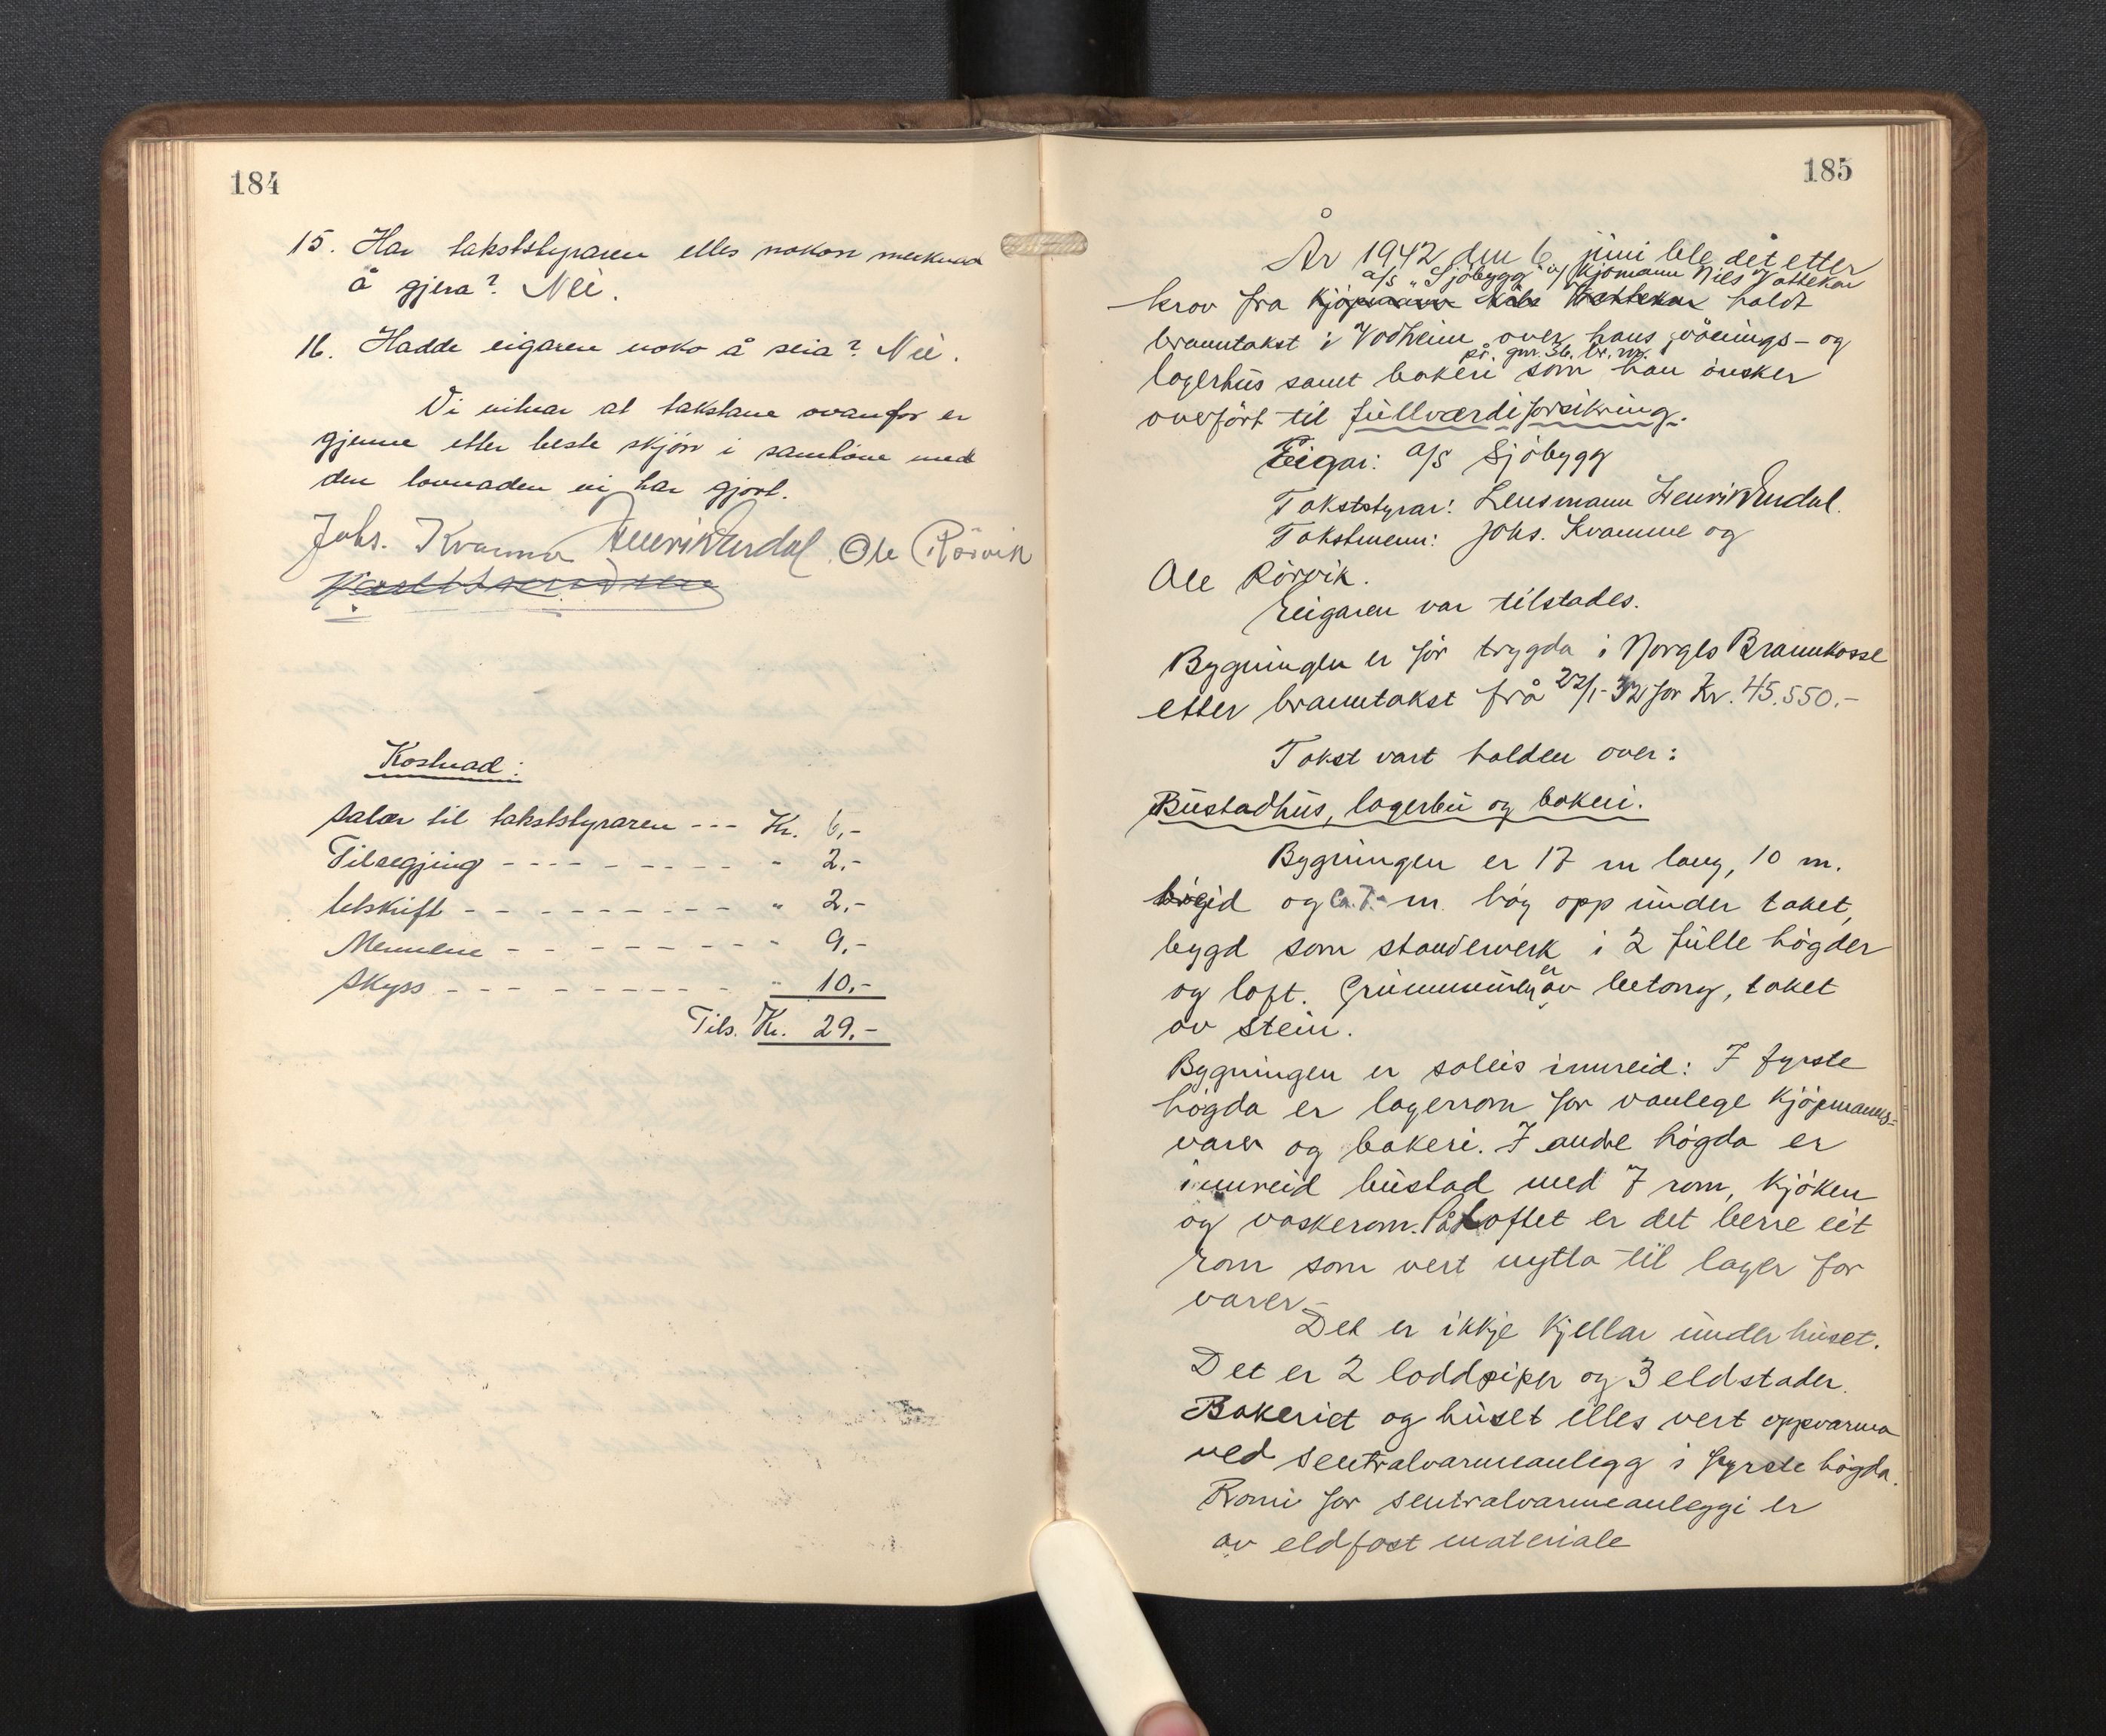 184
15. Har takststyraren elles nokon merknad
å gjera? Nei.
16. Hadde eigaren noko å seia? Nei.
Vi vitnar at takstane ovanfor er
gjenne etter beste skjön i samhöve med
den lovnaden vi har gjort.
Johs. Kvamme Henrik Verdal. Ole Rörvik
Kostnad:
Salær til takststyraren --- Kr. 6,-
Tilsegjing - - - - - - - - - " 2,-
Utskrift - - - - - - - - - " 2,-
Mennene - - - - - - - - " 9,-
Skyss - - - - - - - - - " 10,-
Tils. Kr. 29,-
185
År 1942 den 6 juni ble det etter
a/s "Sjöbygg" v/ Kjömann Nils Vattekar
krav fra Kjöpmann Nils Vattekar holdt
branntakst i Vadheim over hans vånings- og
på gnr. 36. br. nr.
lagerhus samt bakeri som han önsker
overfört til fullværdiforsikring.
Eigar: a/s Sjöbygg
Takststyrar: Lensmann Henrik Verdal.
Takstmenn: Johs. Kvamme og
Ole Rörvik.
Eigaren var tilstades.
Bygningen er för trygda i Norges Brannkasse
etter branntakst frå 22/1-32 for Kr. 45.550.-
Takst vart halden over:
Bustadhus, lagerbu og bakeri.
Bygningen er 17 m lang, 10 m.
breid og ca. 7.- m. høg opp under taket,
bygd som standerverk i 2 fulle högder
og loft. Grunnmuren er av betong, taket
av stein.
Bygningen er soleis innreid: I fyrste
högda er lagerrom for vanlege Kjöpmanns-
varer og bakeri. I andre högda er
innreid bustad med 7 rom, kjöken
og vaskerom. På Loftet er det berre eit
rom som vert nytta til lager for
varer.-
Det er ikkje kjellar under huset.
Det er 2 loddpiper og 3 eldstader.
Bakeriet og huset elles vert oppvarma
ved sentralvarmeanlegg i fyrste högda.
Romi for sentralvarmeanleggi er
av eldfast materiale